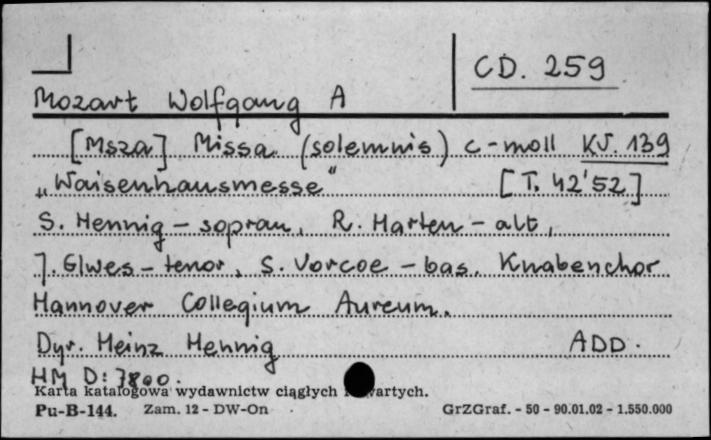 CD. 259
Mozart Wolfgang A
[Msza] Missa (solemnis) c-moll KV. 139
„Waisenhausmesse" [T. 42'52]
S. Hennig - sopran, R. Harten - alt,
J. Elwes - tenor, S. Vorcoe - bas. Knabenchor
Hannover Collegium Aureum.
Dyr. Heinz Hennig ADD.
HM D: 7800.
Karta katalogowa wydawnictw ciągłych i zwartych.
Pu-B-144. Zam. 12 - DW-On GrZGraf. - 50 - 90.01.02 - 1.550.000